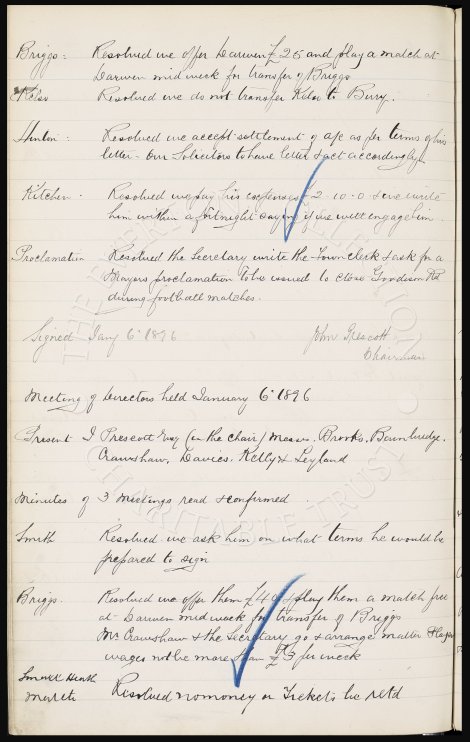 Briggs: Resolved we offer Darwen £25 and play a match at
Darwen mid week for transfer of Briggs
Kelso Resolved we do not transfer Kelso to Bury.
Hinton Resolved we accept settlement of a/c as per terms of his
letter. Our Solicitors to have letter & act accordingly
Kitchen Resolved we pay his expenses £2-10-0 & we write
him within a fortnight saying if we will engage him
Proclamation Resolved the Secretary write the Town Clerk & ask for a
Mayors proclamation to be issued to close Goodison Rd
during football matches.
Signed Jany 6 1896 John Prescott
Chairman
Meeting of Directors held January 6 1896
Present J Prescott Esq (in the chair) Messrs. Brooks, Bainbridge,
Crawshaw, Davies, Kelly & Leyland
Minutes of 3 Meetings read & confirmed
Smith Resolved we ask him on what terms he would be
prepared to sign
Briggs. Resolved we offer them £40 & play them a match free
at Darwen mid week for transfer of Briggs
Mr Crawshaw & the Secretary go & arrange matter
wages not be more than £3 per week
Resolved no money or Tickets be retd
THE EVERTON COLLECTION
CHARITABLE TRUST